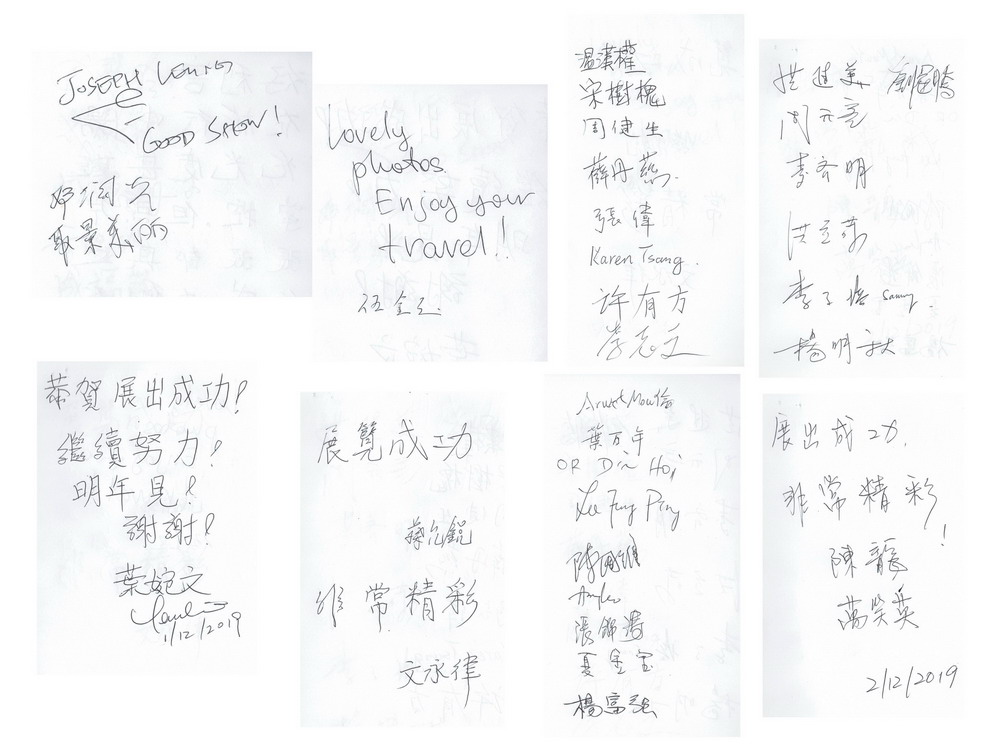 JOSEPH LEUNG
GOOD SHOW!
邓润光
取景美丽
Lovely
photos.
Enjoy your
travel!!
伍金
温漢權
宋樹槐
周健生
薛丹燕
張偉
Karen Tsang.
许有方
李志文
洪進美
周元亮
李容明
李子
Samy.
楊明秋
恭賀展出成功!
繼續努力!
明年見!
謝謝!
葉婉文
1/12/2019
展覽成功
非常精彩
文永律
葉万年
OR Din Hoi
Lee Fung Ping
張錦濤
夏金宝
楊富強
展出成功,
非常精彩!
陳龍
萬癸英
2/12/2019